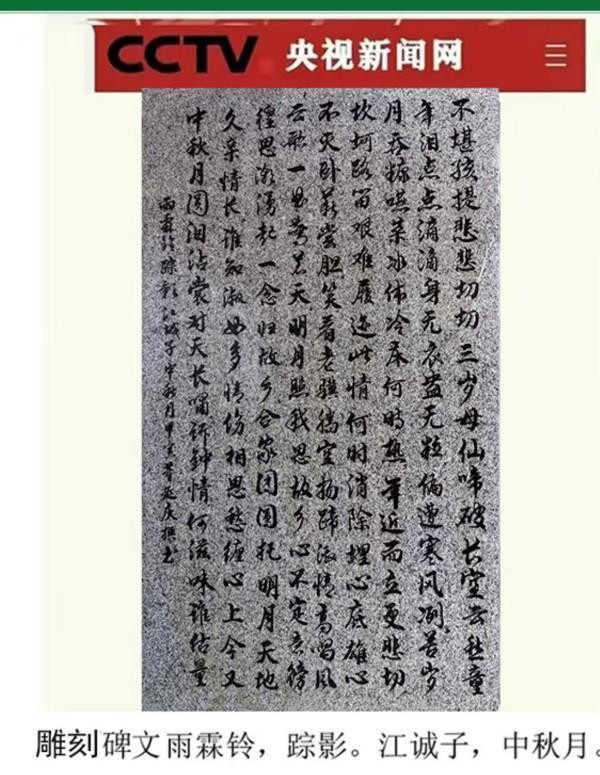 CCTV 央视新闻网
不堪孩提悲悲切切三岁母仙啼破长空云愁童
年泪点点滴滴身无衣益无粒偏遭寒风冽苦岁
月吞糠咽菜冰体冷床何时热年近而立更悲切
坎坷路留艰难履迹此情何时消除埋心底雄心
不灭卧薪尝胆笑看老骥腾空扬蹄激情高唱风
云歌一思苍天明月照我思故乡心不定意徬
徨思潮涌起一念归故乡合家团圆托明月天地
久亲情长谁知淑女多情伤相思愁缠心上今又
中秋月圆泪沾裳对天长啸诉钟情何滋味谁估量
雨霖铃踪影江城子中秋月甲午
雕刻碑文雨霖铃，踪影。江诚子，中秋月。